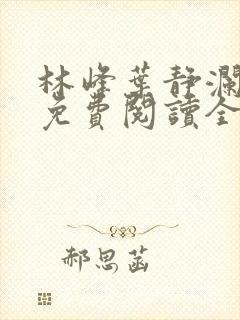 林峰葉靜瀾
免費閱讀全
郝思菡